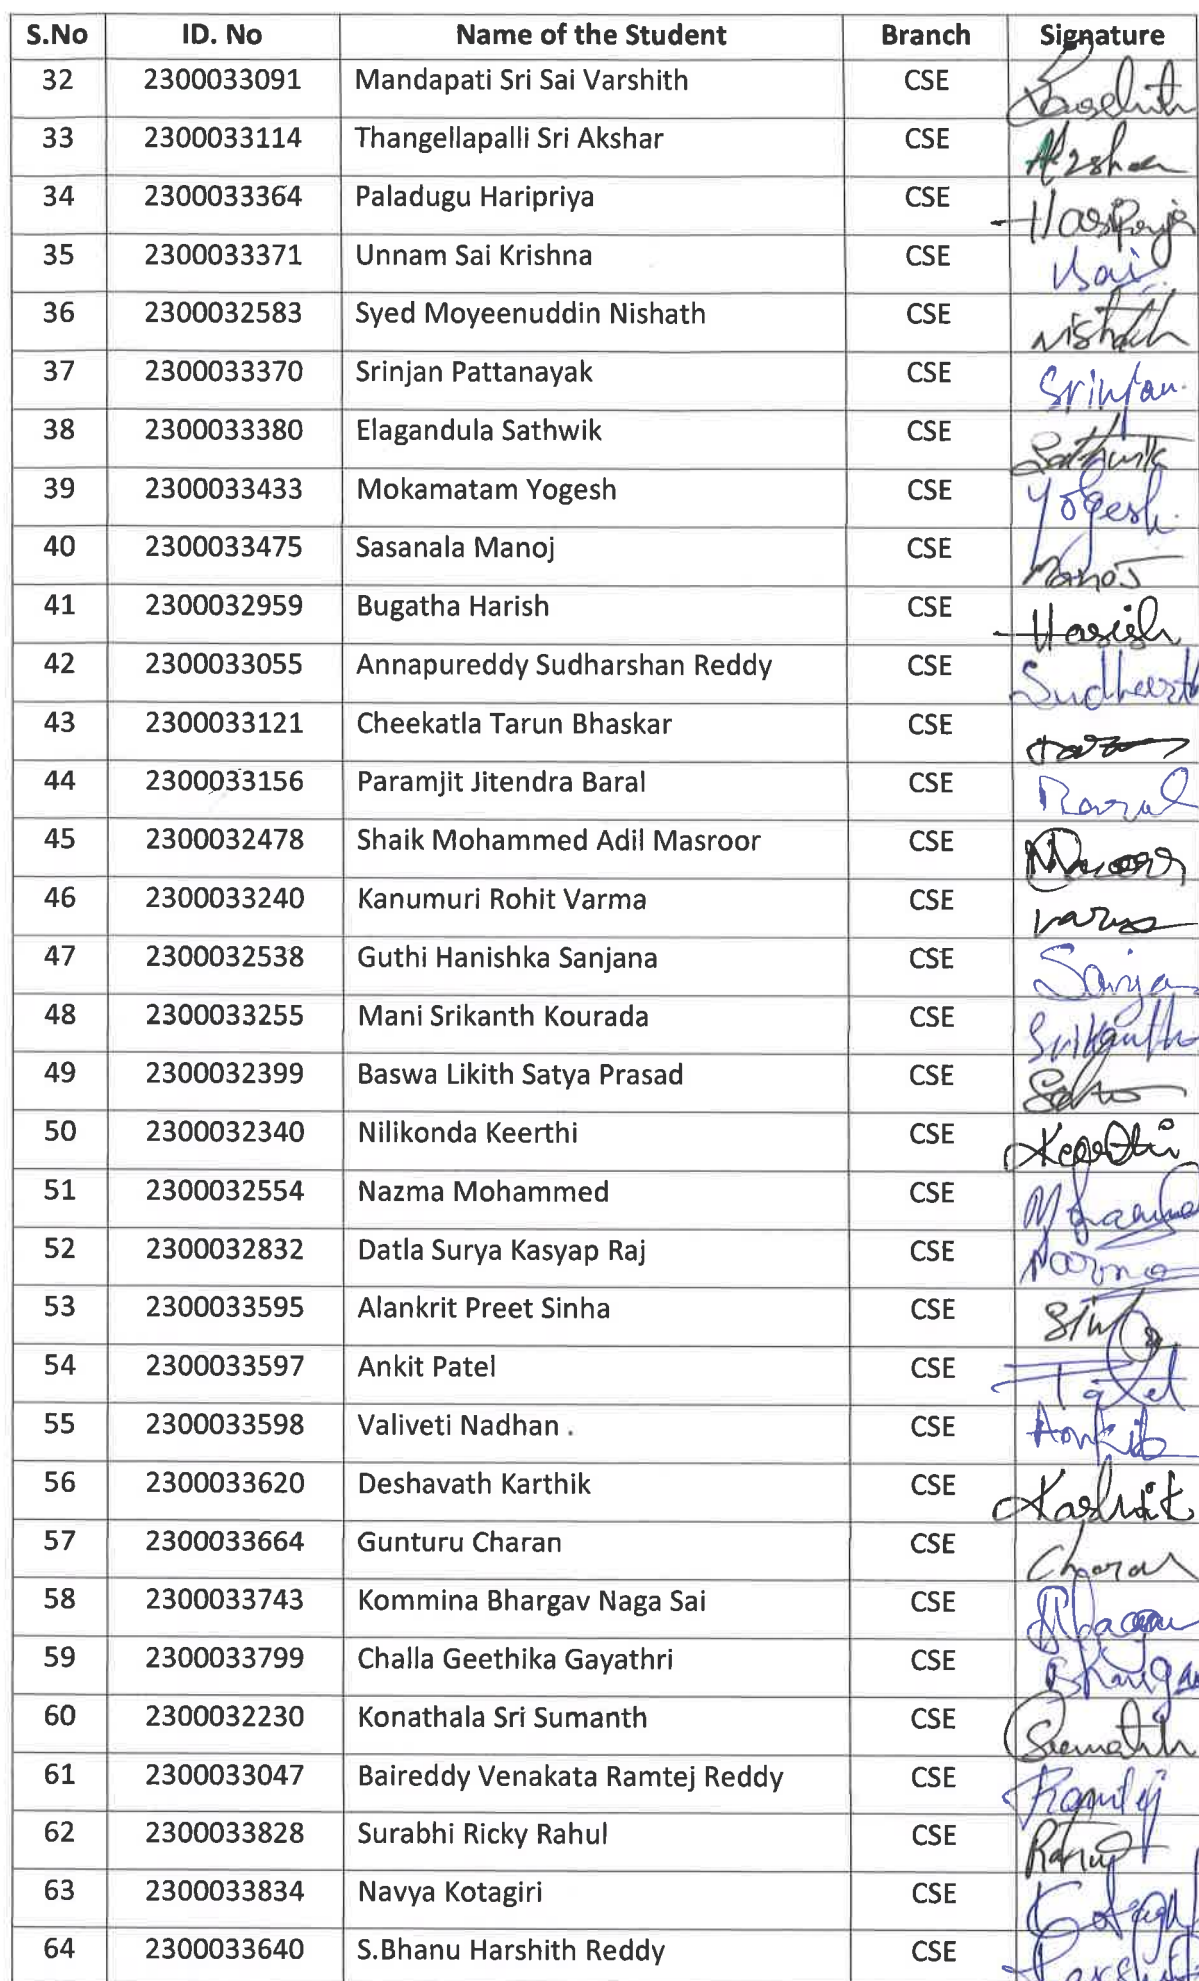 S.No ID. No Name of the Student Branch Signature
32 2300033091 Mandapati Sri Sai Varshith CSE Varshith
33 2300033114 Thangellapalli Sri Akshar CSE Akshar
34 2300033364 Paladugu Haripriya CSE Haripriya
35 2300033371 Unnam Sai Krishna CSE Sai
36 2300032583 Syed Moyeenuddin Nishath CSE Nishath
37 2300033370 Srinjan Pattanayak CSE Srinjan.
38 2300033380 Elagandula Sathwik CSE Sathwik
39 2300033433 Mokamatam Yogesh CSE Yogesh.
40 2300033475 Sasanala Manoj CSE Manoj
41 2300032959 Bugatha Harish CSE Harish
42 2300033055 Annapureddy Sudharshan Reddy CSE
43 2300033121 Cheekatla Tarun Bhaskar CSE
44 2300033156 Paramjit Jitendra Baral CSE
45 2300032478 Shaik Mohammed Adil Masroor CSE
46 2300033240 Kanumuri Rohit Varma CSE Varma
47 2300032538 Guthi Hanishka Sanjana CSE
48 2300033255 Mani Srikanth Kourada CSE Srikanth
49 2300032399 Baswa Likith Satya Prasad CSE
50 2300032340 Nilikonda Keerthi CSE Keerthi
51 2300032554 Nazma Mohammed CSE
52 2300032832 Datla Surya Kasyap Raj CSE
53 2300033595 Alankrit Preet Sinha CSE
54 2300033597 Ankit Patel CSE Patel
55 2300033598 Valiveti Nadhan . CSE
56 2300033620 Deshavath Karthik CSE Karthik
57 2300033664 Gunturu Charan CSE Charan
58 2300033743 Kommina Bhargav Naga Sai CSE
59 2300033799 Challa Geethika Gayathri CSE
60 2300032230 Konathala Sri Sumanth CSE Sumanth
61 2300033047 Baireddy Venakata Ramtej Reddy CSE Ramtej
62 2300033828 Surabhi Ricky Rahul CSE Rahul
63 2300033834 Navya Kotagiri CSE
64 2300033640 S.Bhanu Harshith Reddy CSE